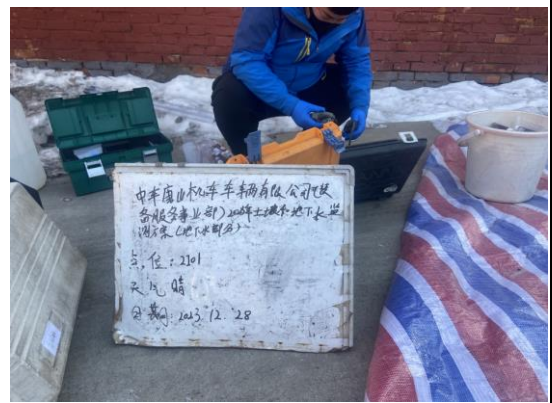 中车唐山机车车辆有限公司(装
备服务事业部)2023年土壤和地下水监
测方案(地下水部分)
点位:2J01
天气 晴
日期:2023.12.28